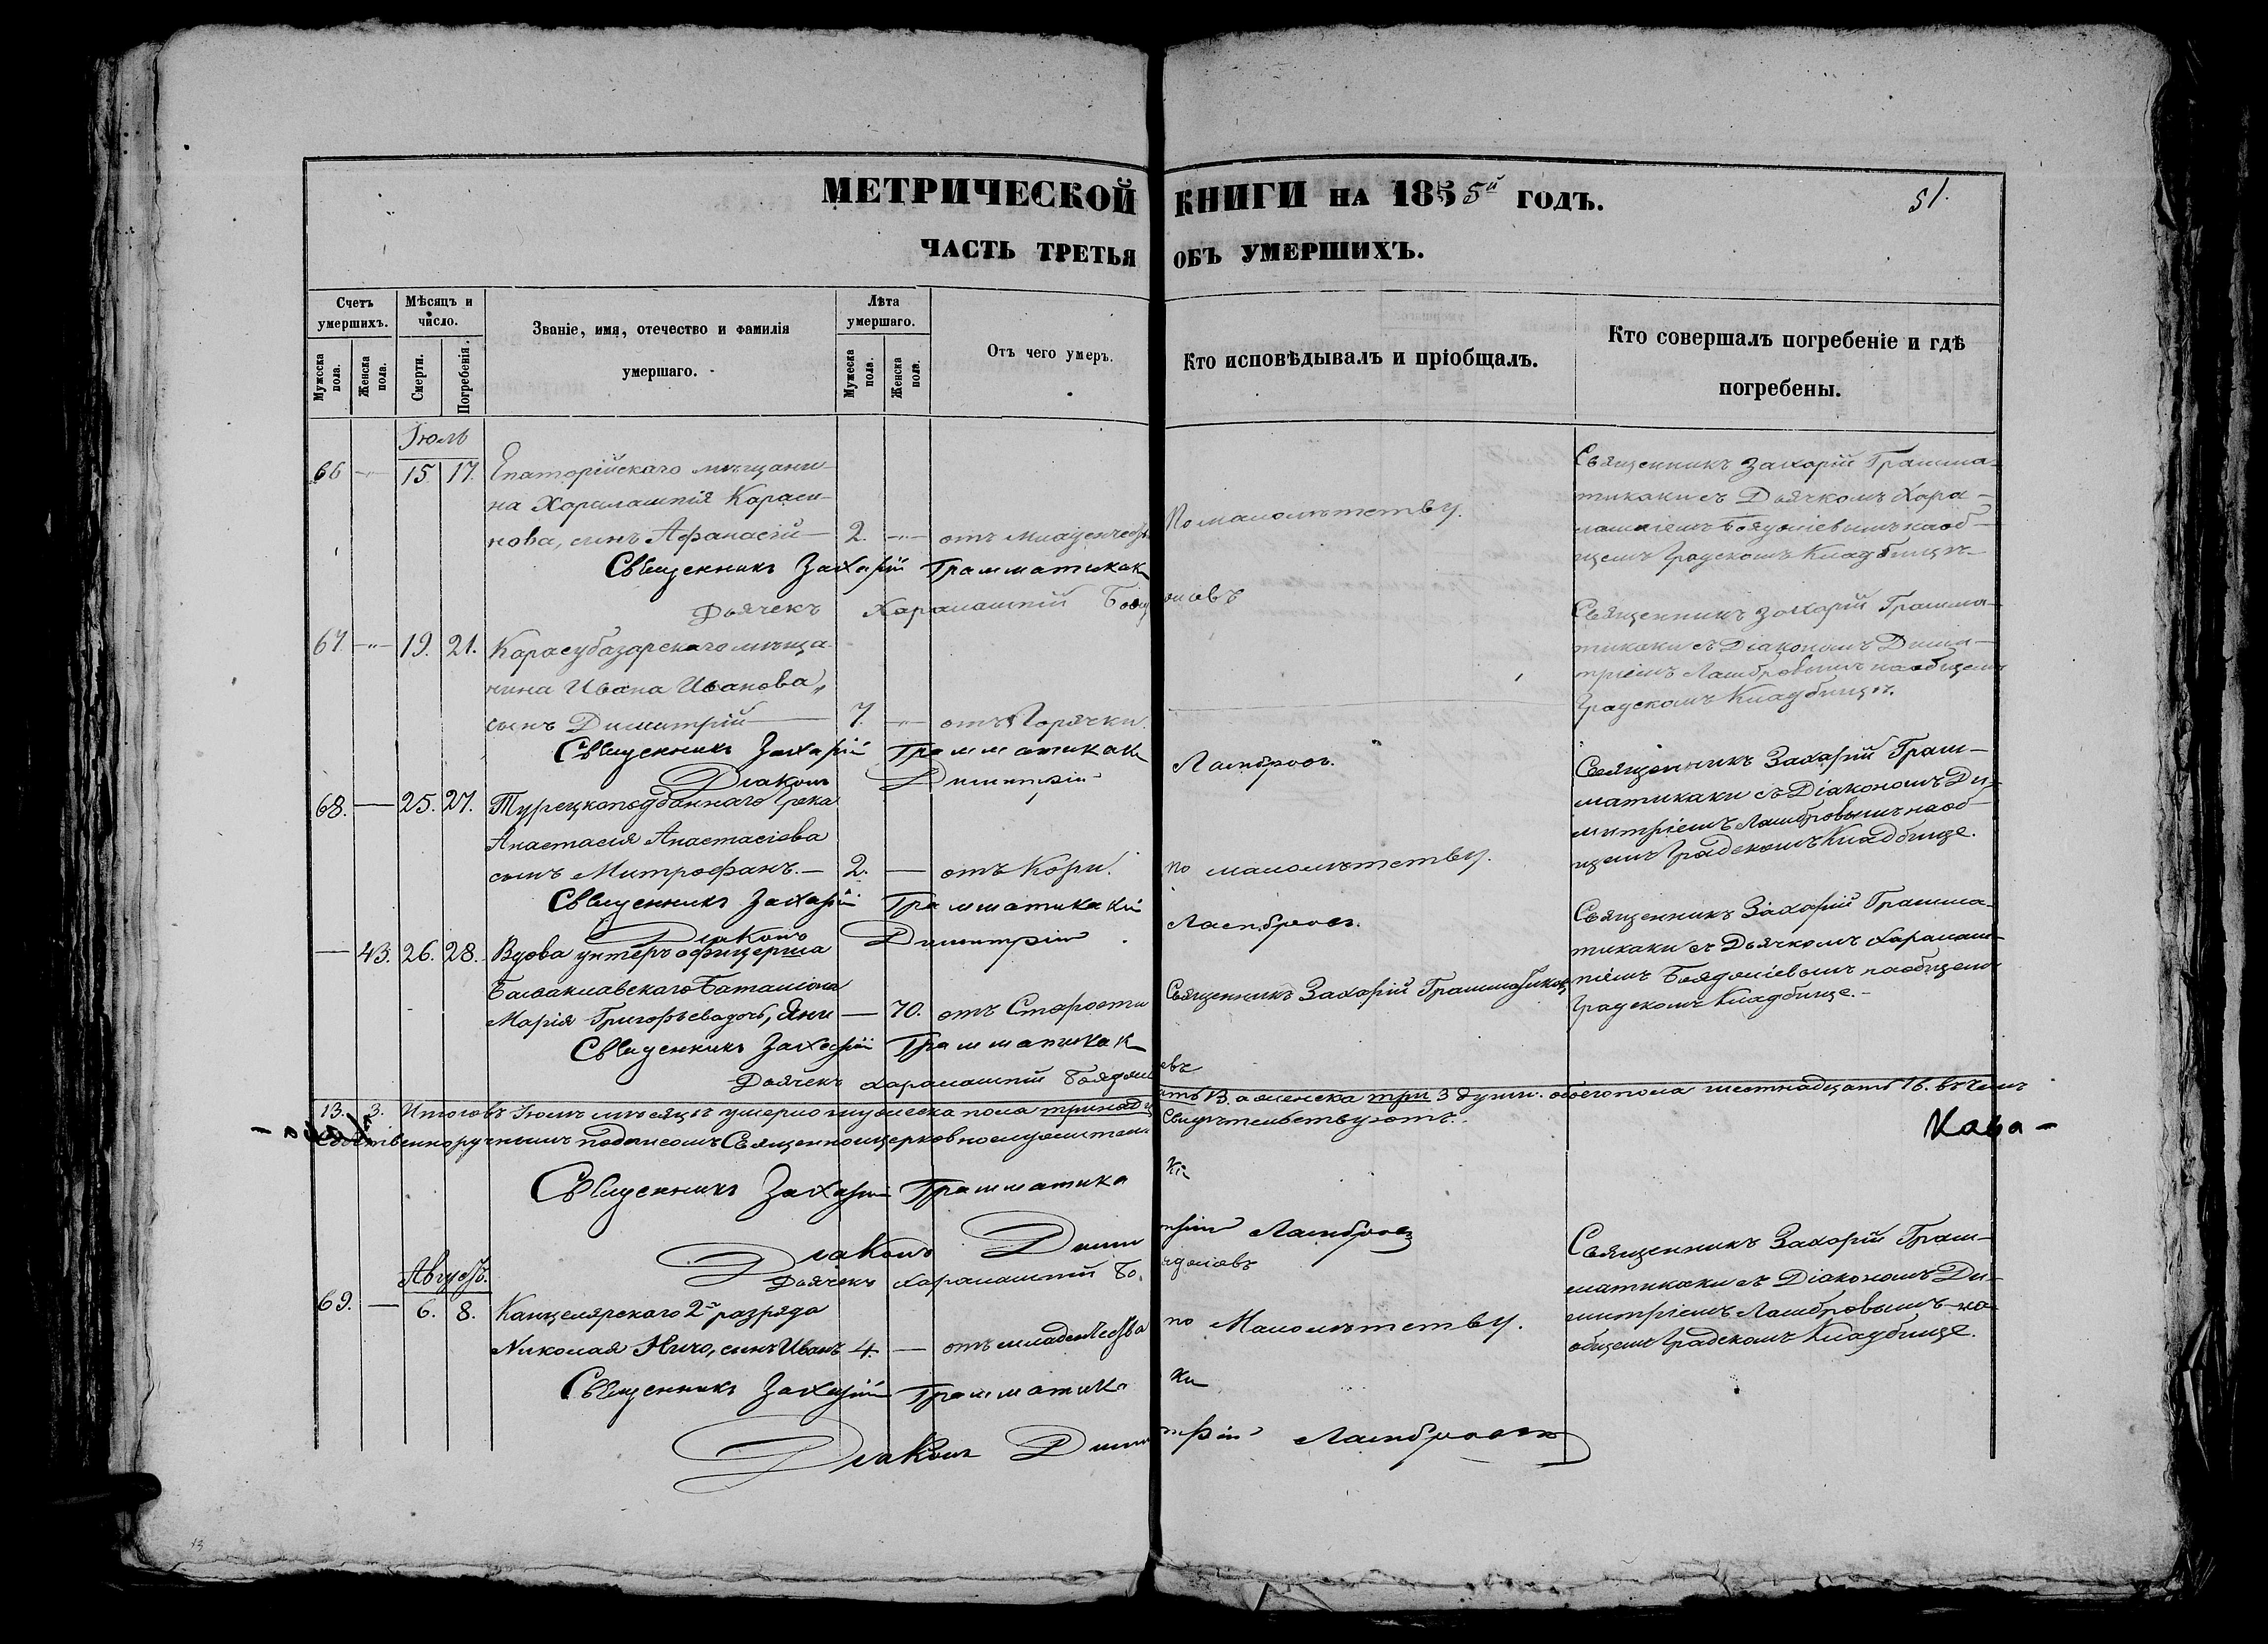 МЕТРИЧЕСКОЙ КНИГИ НА 1855й ГОДЪ.
51.
ЧАСТЬ ТРЕТЬЯ ОБЪ УМЕРШИХЪ.
Счетъ умершихъ.
Мужеска пола.
Женска пола.
Мѣсяцъ и число.
Смерти.
Погребенія.
Званіе, имя, отечество и фамилія
умершаго.
Лѣта умершаго.
Мужеска пола.
Женска пола.
Отъ чего умеръ.
Кто исповѣдывалъ и пріобщалъ.
Кто совершалъ погребеніе и гдѣ
погребены.
Іюль
66 15 17. Евпаторійскаго мѣщани-
на Харалампія Караси-
нова, сынъ Афанасій — 2. отъ младенчества По малолѣтству.
Священникъ Захарій Грамма-
тикаки съ Дьячкомъ Хара-
лампіемъ Бояджіевымъ на об-
щемъ Градскомъ Кладбищѣ
Священникъ Захарій Грамматикаки
Дьячекъ Харалампій Бояджіевъ
67 19. 21. Карасубазарскаго мѣща-
нина Ивана Иванова,
сынъ Димитрій — 7. отъ Горячки.
Священникъ Захарій Грамма-
тикаки съ Діакономъ Дими-
тріемъ Ламбровымъ на общемъ
Градскомъ Кладбищѣ.
Священникъ Захарій Грамматикаки
Діаконъ Димитрій Ламбровъ.
68. — 25. 27. Турецкоподданнаго Грека
Анастасія Анастасіева
сынъ Митрофанъ. — 2. — отъ Кори. по малолѣтству.
Священникъ Захарій Грам-
матикаки съ Діакономъ Ди-
митріемъ Ламбровымъ на об-
щемъ Градскомъ Кладбище.
Священникъ Захарій Грамматикаки
Діаконъ Димитрій Ламбровъ.
— 43. 26. 28. Вдова унтеръ офицерша
Балаклавскаго Баталіона
Марія Григорьева дочь, Яни — 70. отъ Старости Священникъ Захарій Грамматикаки
Священникъ Захарій Грамма-
тикаки съ Дьячкомъ Харалам-
піемъ Бояджіевымъ на общемъ
Градскомъ Кладбище.-
Священникъ Захарій Грамматикаки
Дьячекъ Харалампій Бояджіевъ
13. 3. Итого въ Іюлѣ мѣсяцѣ умерло мужеска пола тринадцать 13. а женска три 3 души. обоего пола шестнадцать 16. въ чемъ
собственноручнымъ подписомъ Священноцерковнослужители Свидѣтельствуютъ.
Кава-
Священникъ Захарій Грамматикаки
Діаконъ Димитрій Ламбровъ
Дьячекъ Харалампій Бояджіевъ
Августъ.
69. — 6. 8. Канцелярскаго 2го разряда
Николая Ничо, сынъ Иванъ 4. — отъ младенчества по Малолѣтству.
Священникъ Захарій Грам-
матикаки съ Діакономъ Ди-
митріемъ Ламбровымъ на
общемъ Градскомъ Кладбище.
Священникъ Захарій Грамматикаки
Діаконъ Димитрій Ламбровъ